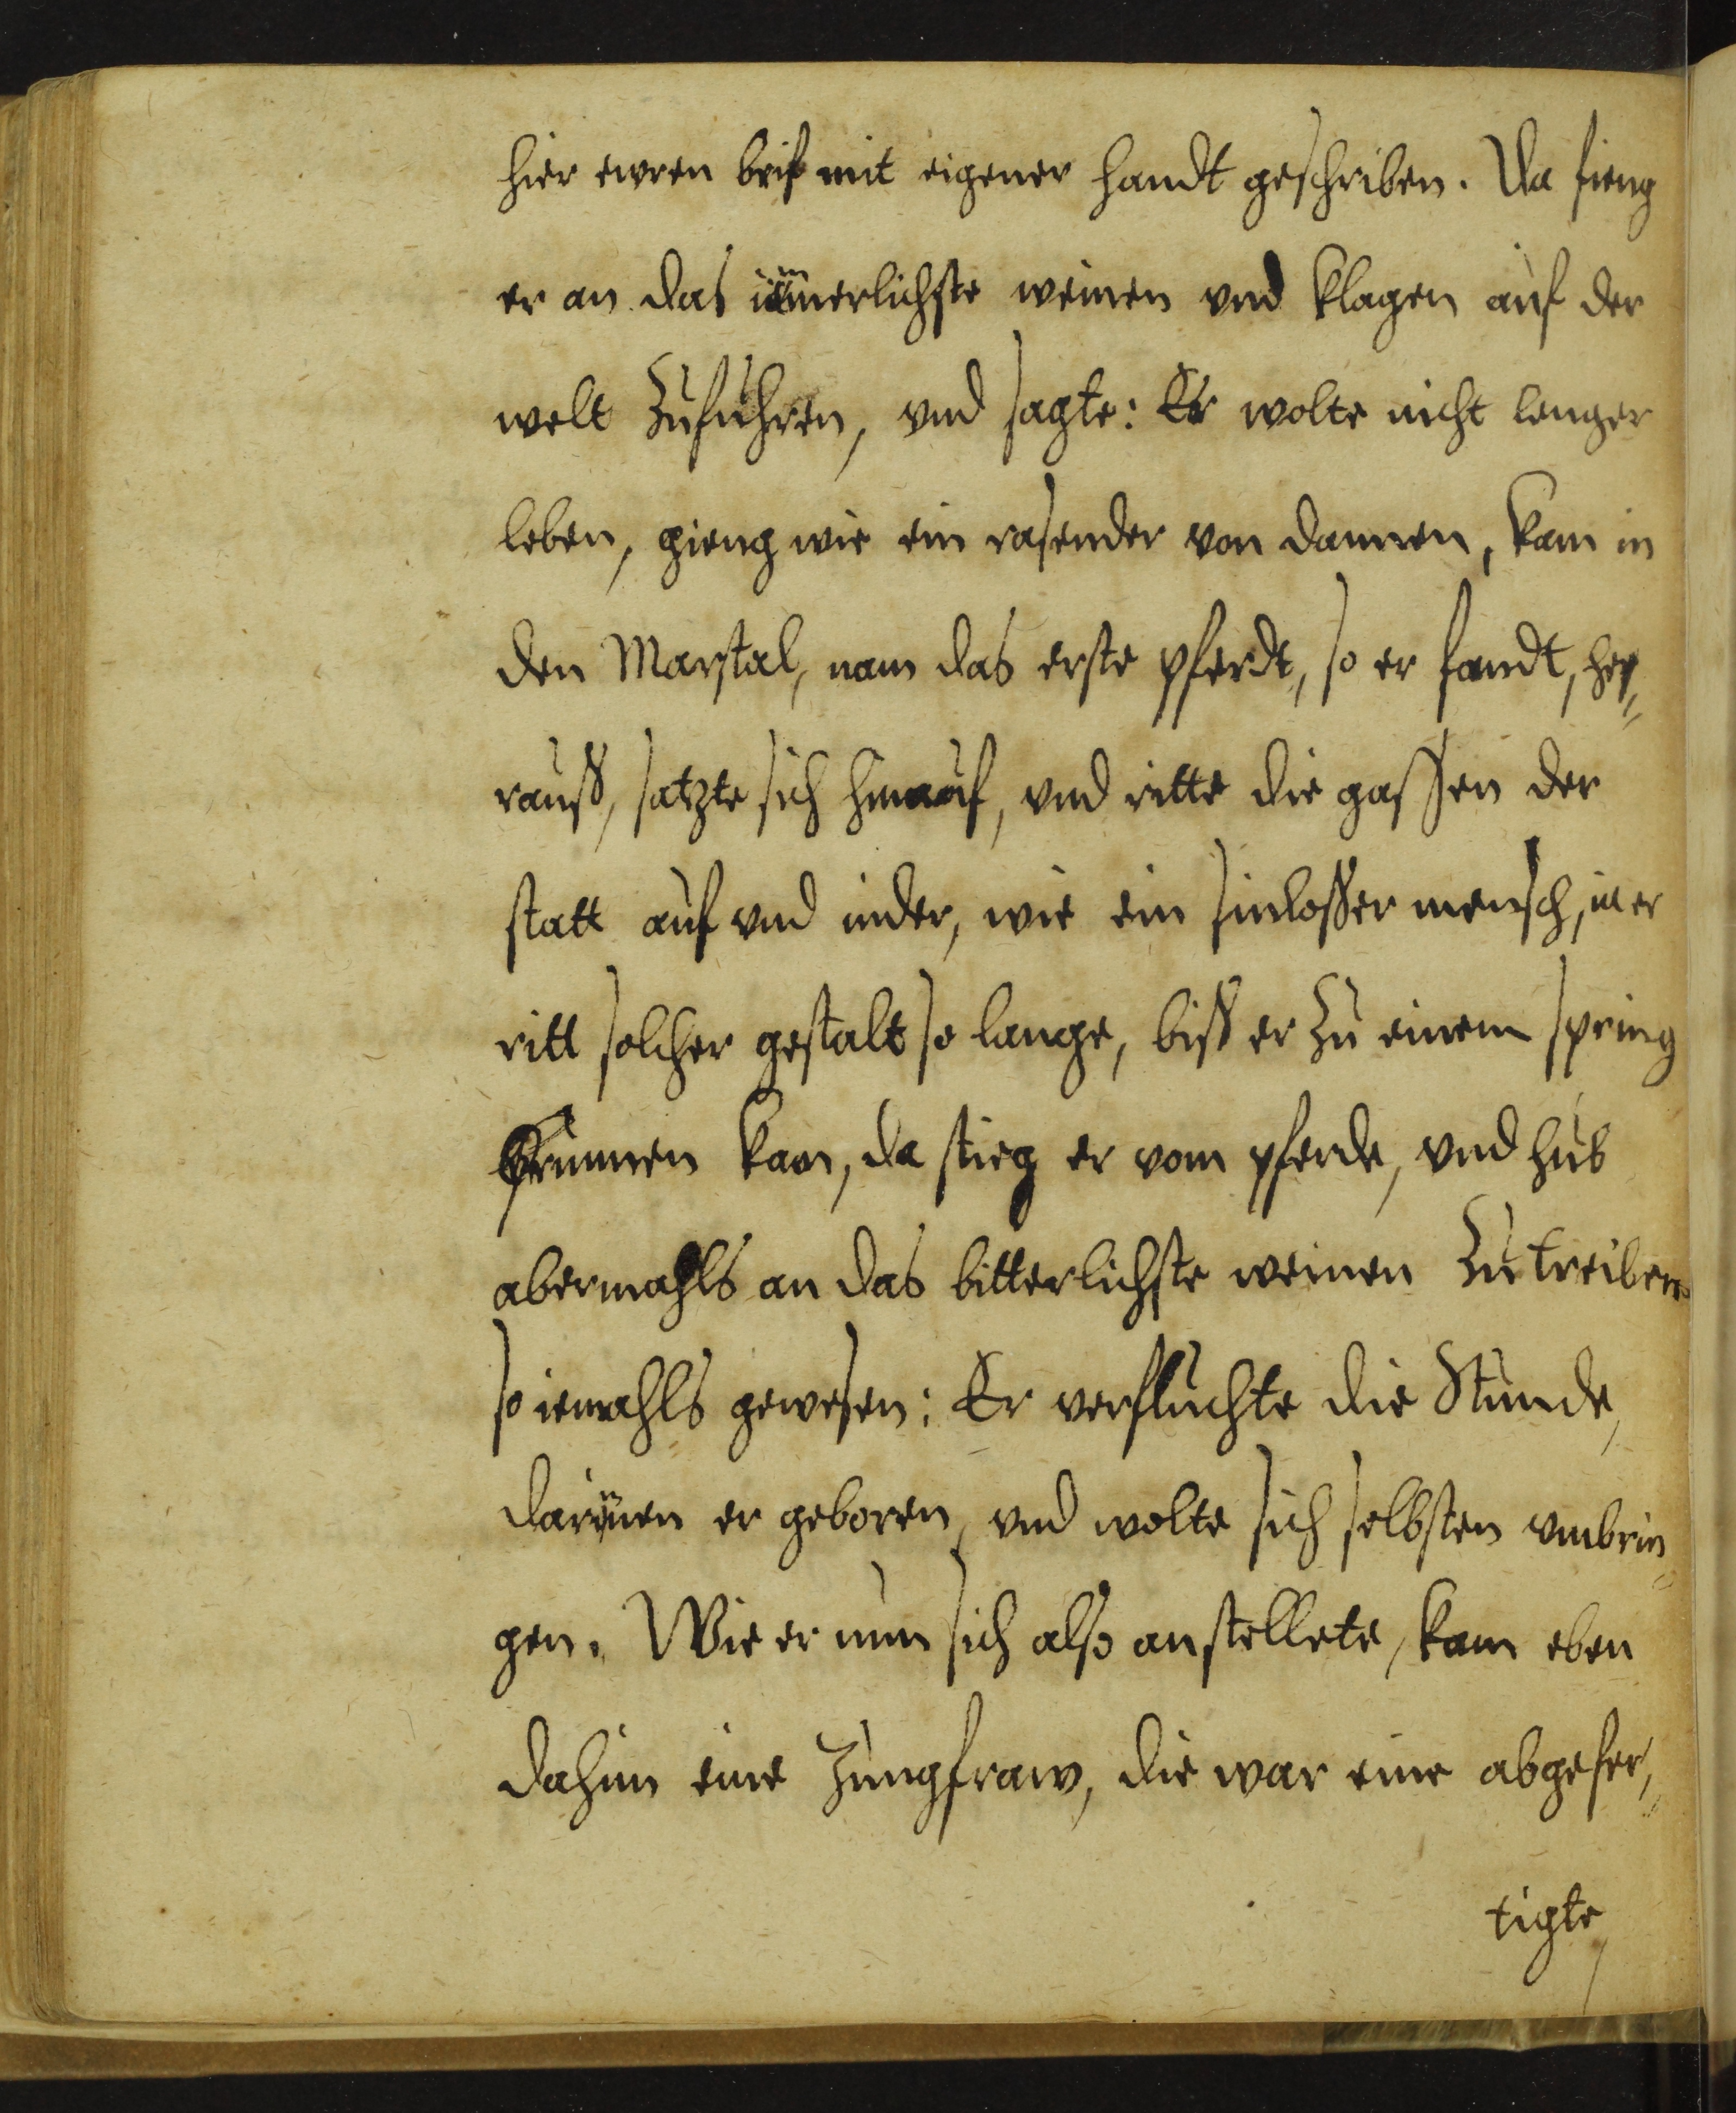 hier ewren brif mit eigener handt geschriben. Da fieng
er an das iämerlichste weinen vnd klagen auf der
welt Zuführen, vnd sagte: Er wolte nicht lenger
leben, gieng wie ein rasender von dannen, kam in
den Marstal, nam das erste pferdt, so er fandt, her¬
rauß, satzte sich hinauf, vnd ritte die gassen der
statt auf vnd nider, wie ein sinloßer mensch, ia er
ritt solcher gestalt so lange, biß er zu einem spring
brunnen kam, da stieg er vom pferde, vnd hub
abermahls an das bitterlichste weinen Zu treiben
so iemahls gewesen: Er verfluchte die Stunde,
darinen er geboren, vnd wolte sich selbsten vmbrin¬
gen. Wie er nun sich also anstellete, kam eben
dahin eine Jungfraw, die war eine abgefer¬
tigte